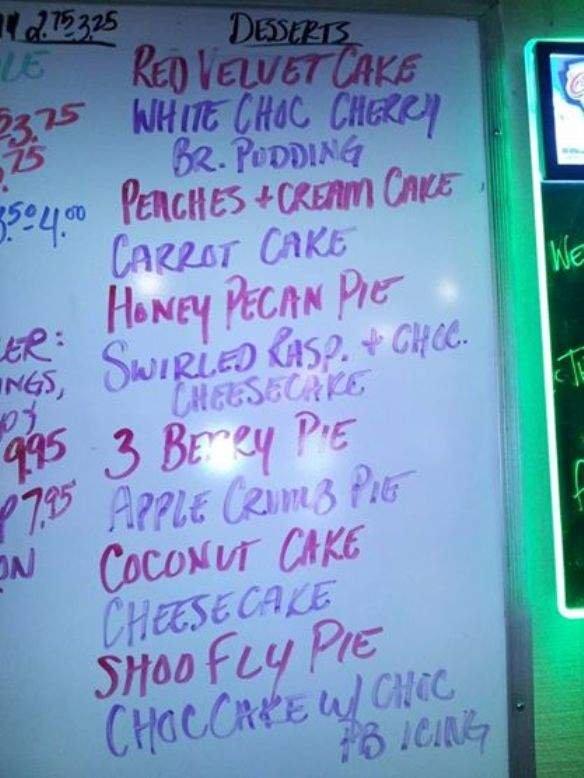 2.75 3.25
DESSERTS
RED VELVET CAKE
WHITE CHOC CHERRY
BR. PUDDING
3.75
.75
PEACHES + CREAM CAKE
3.50 4.00
CARROT CAKE
HONEY PECAN PIE
ER:
SWIRLED RASP. + CHOC.
INGS,
CHEESECAKE
9.95
3 BERRY PIE
7.95
APPLE CRUMB PIE
ON
COCONUT CAKE
CHEESECAKE
SHOO FLY PIE
CHOC CAKE W/ CHOC
PB ICING
WE
TH